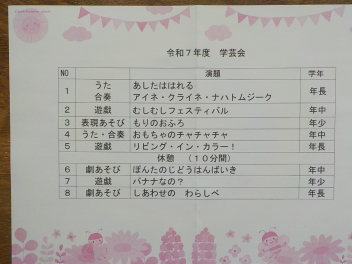 令和７年度　学芸会
NO　演題　学年
1　うた　あしたははれる　年長
合奏　アイネ・クライネ・ナハトムジーク
2　遊戯　むしむしフェスティバル　年中
3　表現あそび　もりのおふろ　年少
4　うた・合奏　おもちゃのチャチャチャ　年中
5　遊戯　リビング・イン・カラー！　年長
休憩　（１０分間）
6　劇あそび　ぽんたのじどうはんばいき　年中
7　遊戯　バナナなの？　年少
8　劇あそび　しあわせの　わらしべ　年長